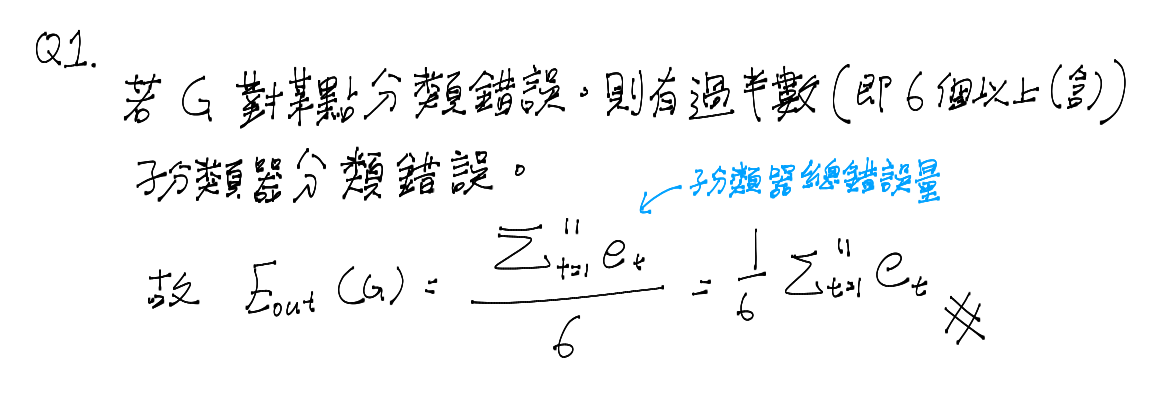 Q1.
若 G 對某點分類錯誤。則有過半數(即 6 個以上(含))
子分類器分類錯誤。
子分類器總錯誤量
故 E_out (G) = \frac{\sum_{t=1}^{11} e_t}{6} = \frac{1}{6} \sum_{t=1}^{11} e_t ※